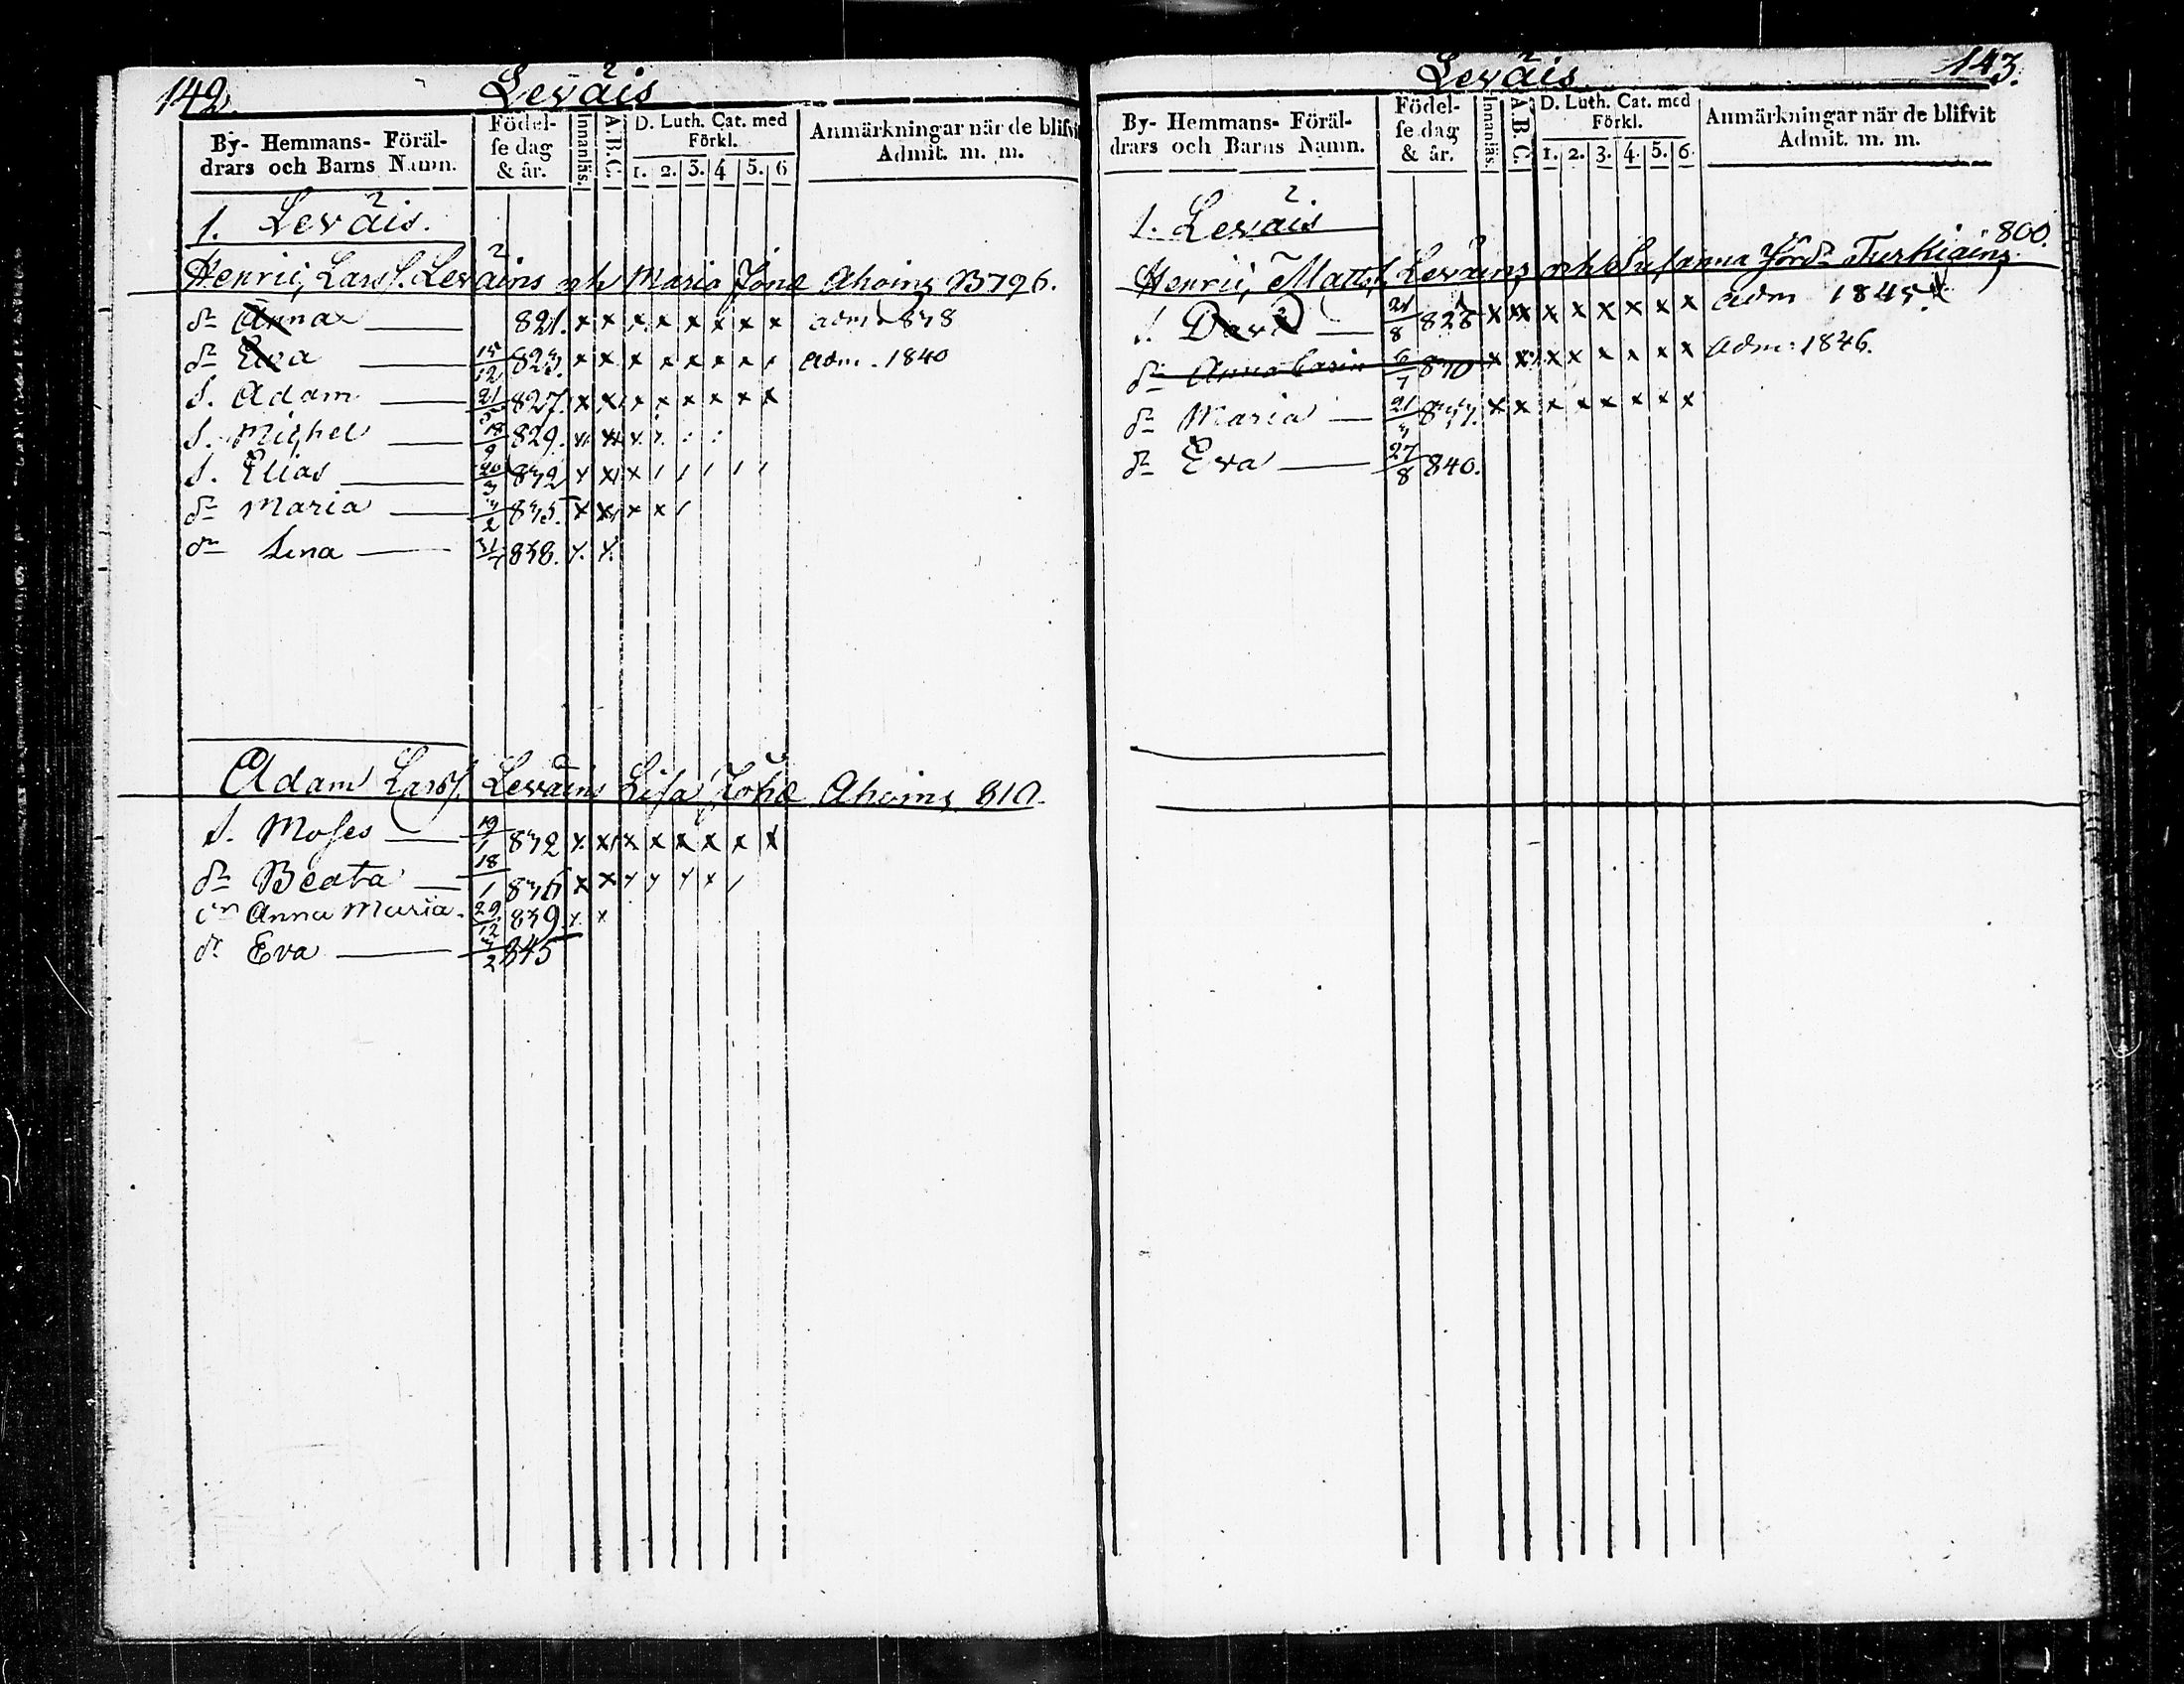 142.
Leväis
By- Hemmans- Föräl-
drars och Barns Namn.
Födel-
se dag
& år.
Innanläs.
A.B.C.
D. Luth. Cat. med
Förkl.
1. 2. 3. 4 5. 6
Anmärkningar när de blifvit
Admit. m. m.
1. Leväis.
Henric Larsf. Leväins och Maria Jonæ Ahoins B796.
dr Anna 821. x x x x x x x x adm 1838
dr Eva 15/12 823. x x x x x x x adm. 1840
S. Adam 21 827. x x x x x x x x
S. Michel 18/9 829. x x x x
S. Elias 20/3 832 x x x
dr Maria 3/2 835. x x x x
dr Lena 31 838. x x
Adam Larsf. Leväins Lisa Joh:æ Ahoins 810.
S. Moses 19/1 832 x x x x x x x x
dr Beata 18/1 836 x x x x x x
dr Anna Maria. 29/12 839. x x
dr Eva 3/2 845
143.
Leväis
By- Hemmans- Föräl-
drars och Barns Namn.
Födel-
se dag
& år.
Innanläs.
A.B.C.
D. Luth. Cat. med
Förkl.
1. 2. 3. 4. 5. 6.
Anmärkningar när de blifvit
Admit. m. m.
1. Leväis
800.
Henric Mattsf. Leväins och Susanna Turkiains
S. David 21/8 828 x x x x x x x x adm 1845
dr Anna Carin 6/7 830 x x x x x x x x adm: 1846.
dr Maria 21/3 837. x x x x x x x x
dr Eva 27/8 840.